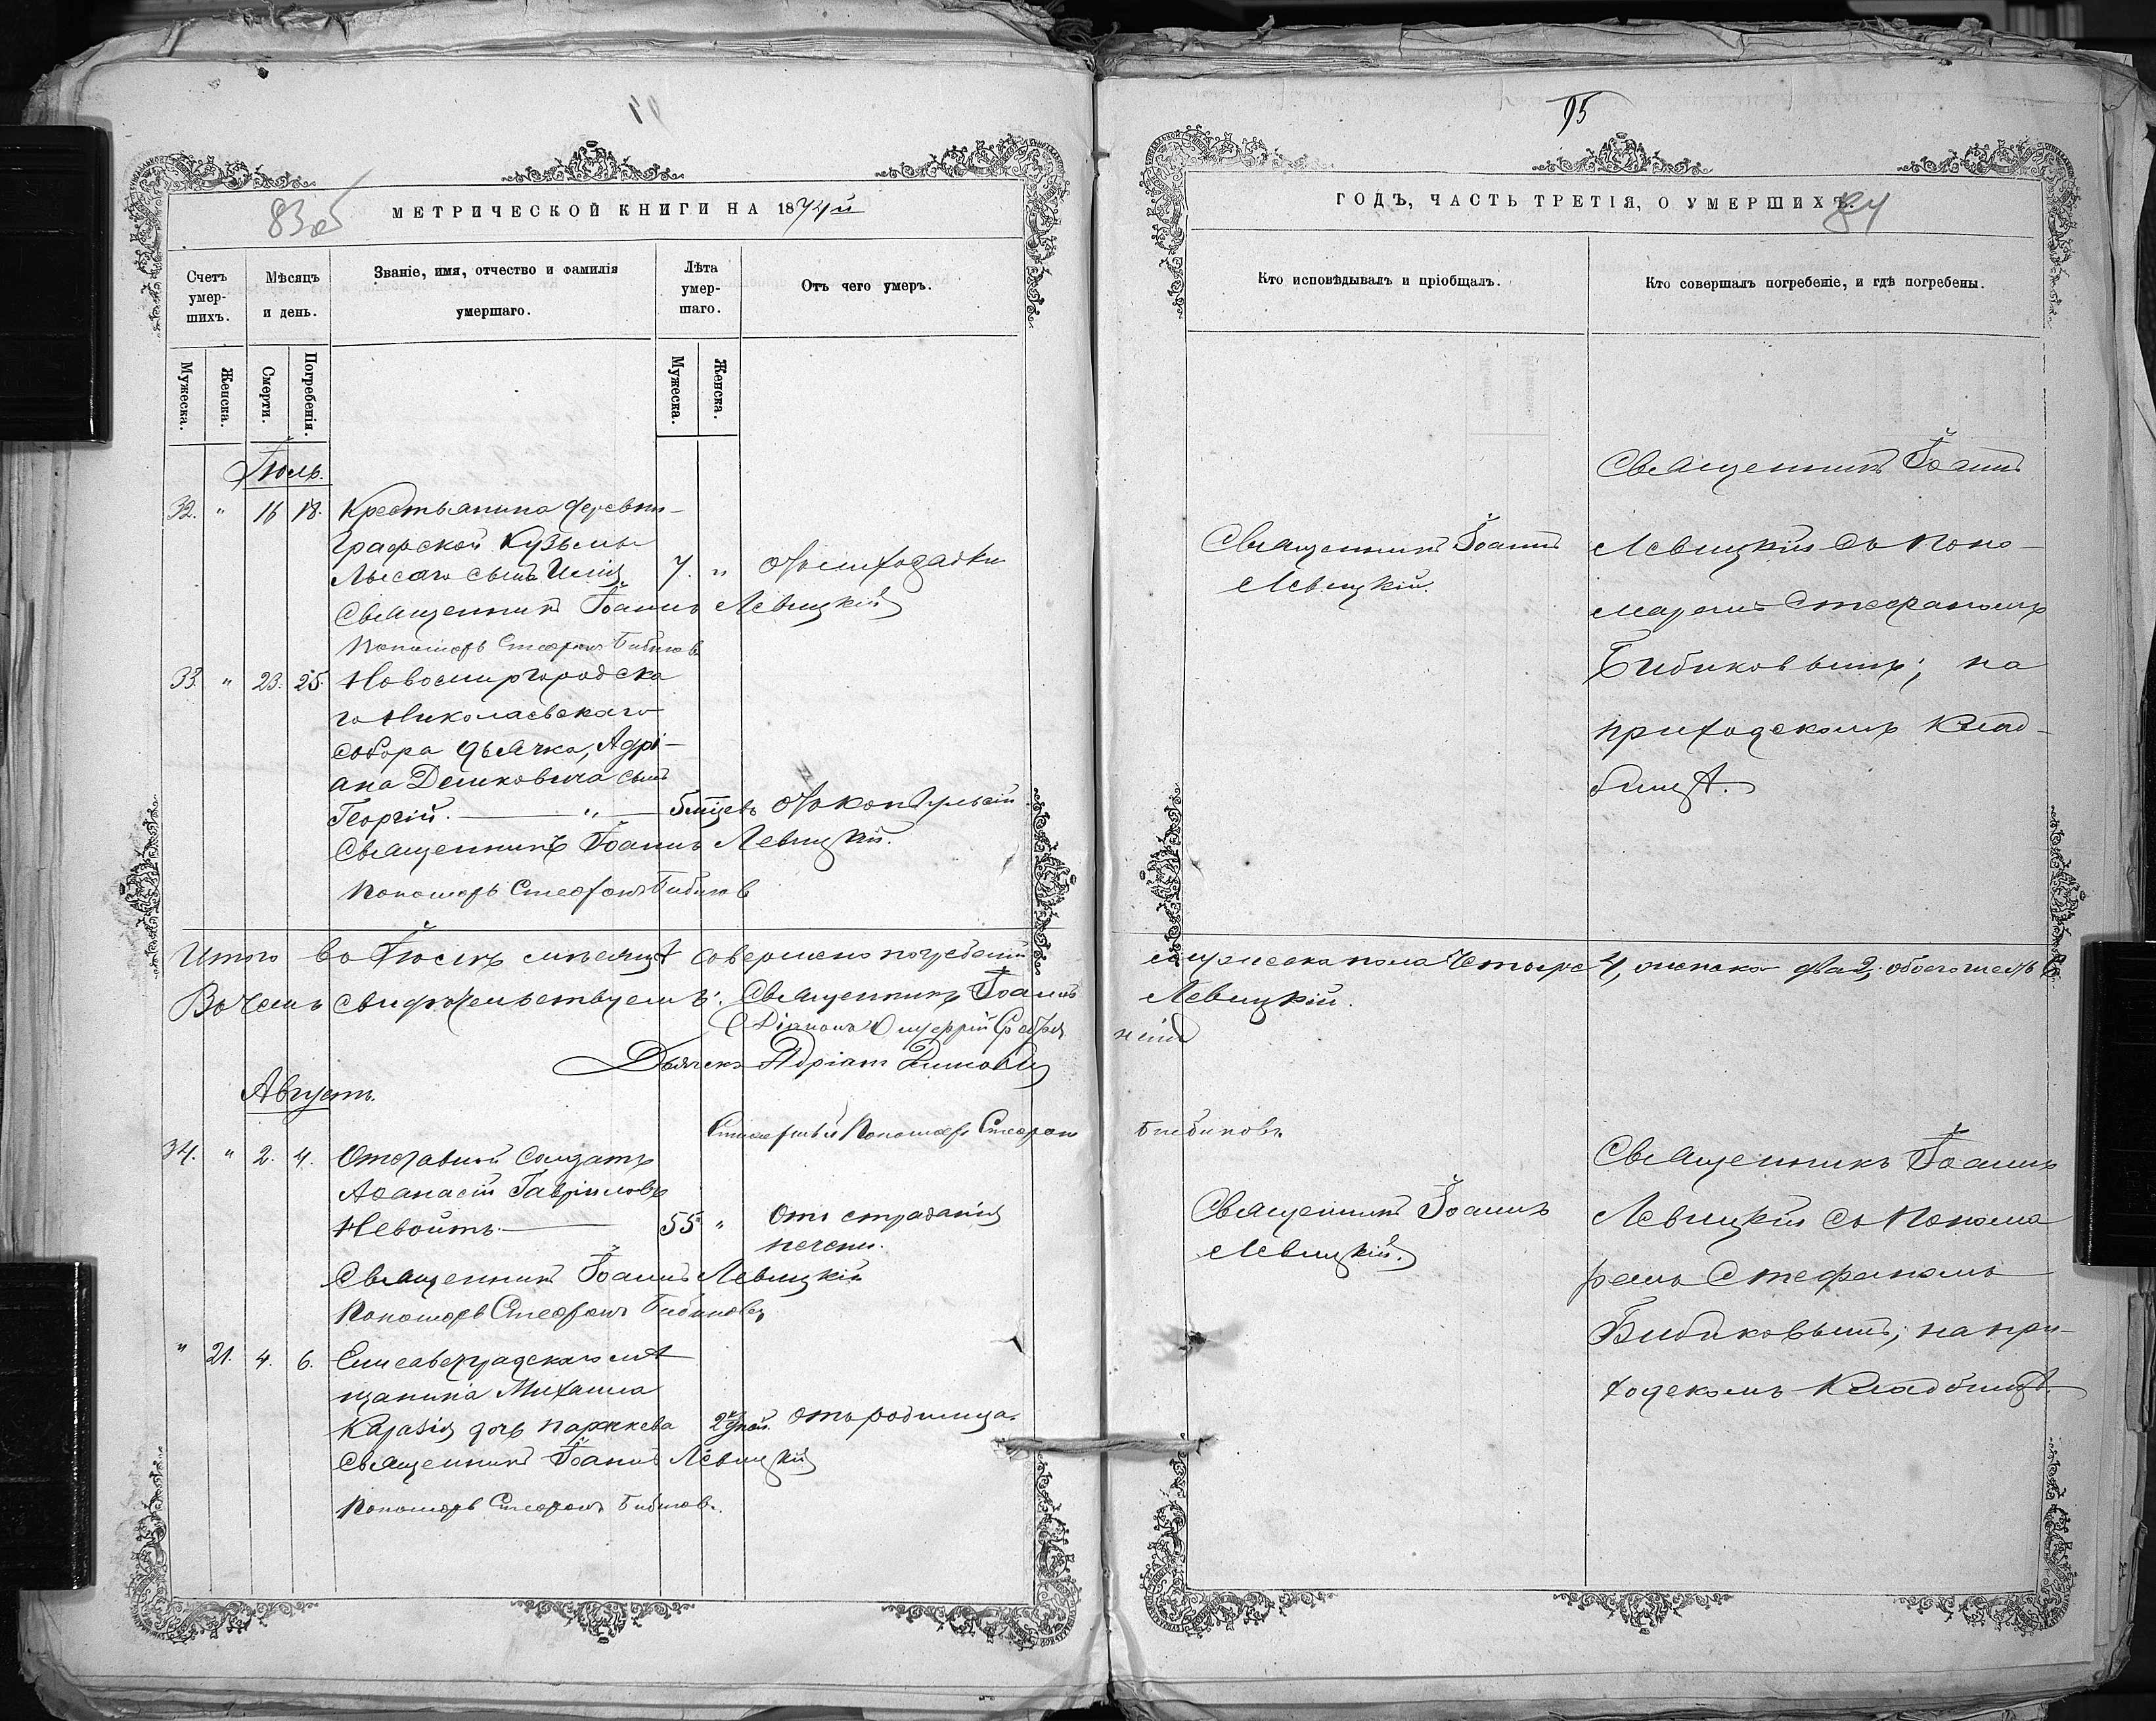 83об
МЕТРИЧЕСКОЙ КНИГИ НА 1874й
Счетъ умер-шихъ.
Мѣсяцъ и день.
Званіе, имя, отчество и фамилія умершаго.
Лѣта умер-шаго.
Отъ чего умеръ.
Мужеска.
Женска.
Смерти.
Погребенія.
Мужеска.
Женска.
Іюль.
32. " 16 18. Крестьянина деревни
Графской Кузьмы
Лысаго сынъ 7. " Отъ лихорадки
Священникъ Іоаннъ Левицкій
Пономарь Стефанъ Бибиковъ
33. " 23. 25. Новомиргородска
го Николаевскаго
собора дьячка, Адрі-
ана Демковича сынъ
Георгій. " 5 мѣсяцевъ Отъ конвульсій
Священникъ Іоаннъ Левицкій.
Пономарь Стефанъ Бибиковъ
Итого въ Іюлѣ мѣсяцѣ совершено погребеній
Въ чемъ свидѣтельствуемъ: Священникъ Іоаннъ
Діаконъ
Дьячекъ Адріанъ Димовичъ
Августъ.
Пономарь Стефанъ
34. " 2. 4. Отставный Солдатъ
Аѳанасій Гавріиловъ
Невойтъ 55 " Отъ страданія
печени.
Священникъ Іоаннъ Левицкій
Пономарь Стефанъ Бибиковъ
" 21. 4. 6. Елисаветградскаго мѣ
щанина Михаила
дочь Параскева 2 дней. Отъ родимца.
Священникъ Іоаннъ Левицкій
Пономарь Стефанъ Бибиковъ.
95
84
ГОДЪ, ЧАСТЬ ТРЕТІЯ, О УМЕРШИХЪ.
Кто исповѣдывалъ и пріобщалъ.
Кто совершалъ погребеніе, и гдѣ погребены.
Священникъ Іоаннъ
Левицкій.
Священникъ Іоаннъ
Левицкій съ Поно-
маремъ Стефаномъ
Бибиковымъ; на
приходскомъ Клад-
бищѣ.
мужеска пола четыре 4, женска два 2, обоего шесть 6
Левицкій.
Бибиковъ.
Священникъ Іоаннъ
Левицкій.
Священникъ Іоаннъ
Левицкій съ Понома
ремъ Стефаномъ
Бибиковымъ; на при-
ходскомъ Кладбищѣ.